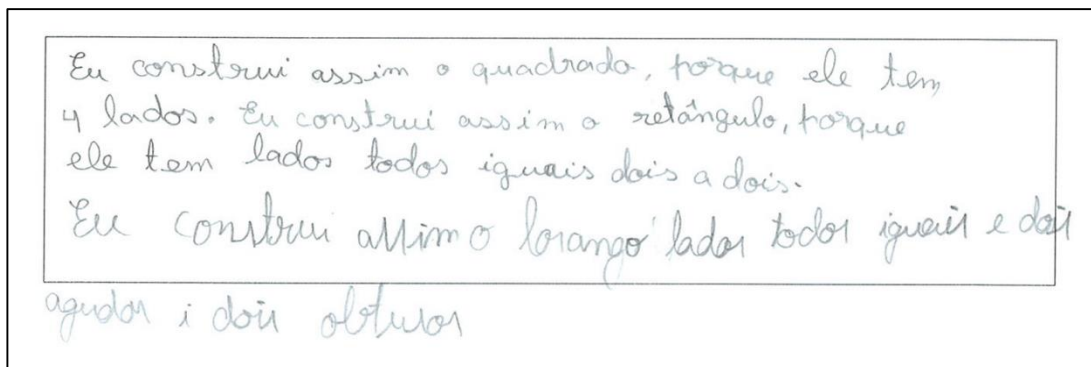 Eu construi assim o quadrado, porque ele tem
4 lados. Eu construi assim o retângulo, porque
ele tem lados todos iguais dois a dois.
Eu construi assim o lorango lados todos iguais e dois
agudos i dois obtusos